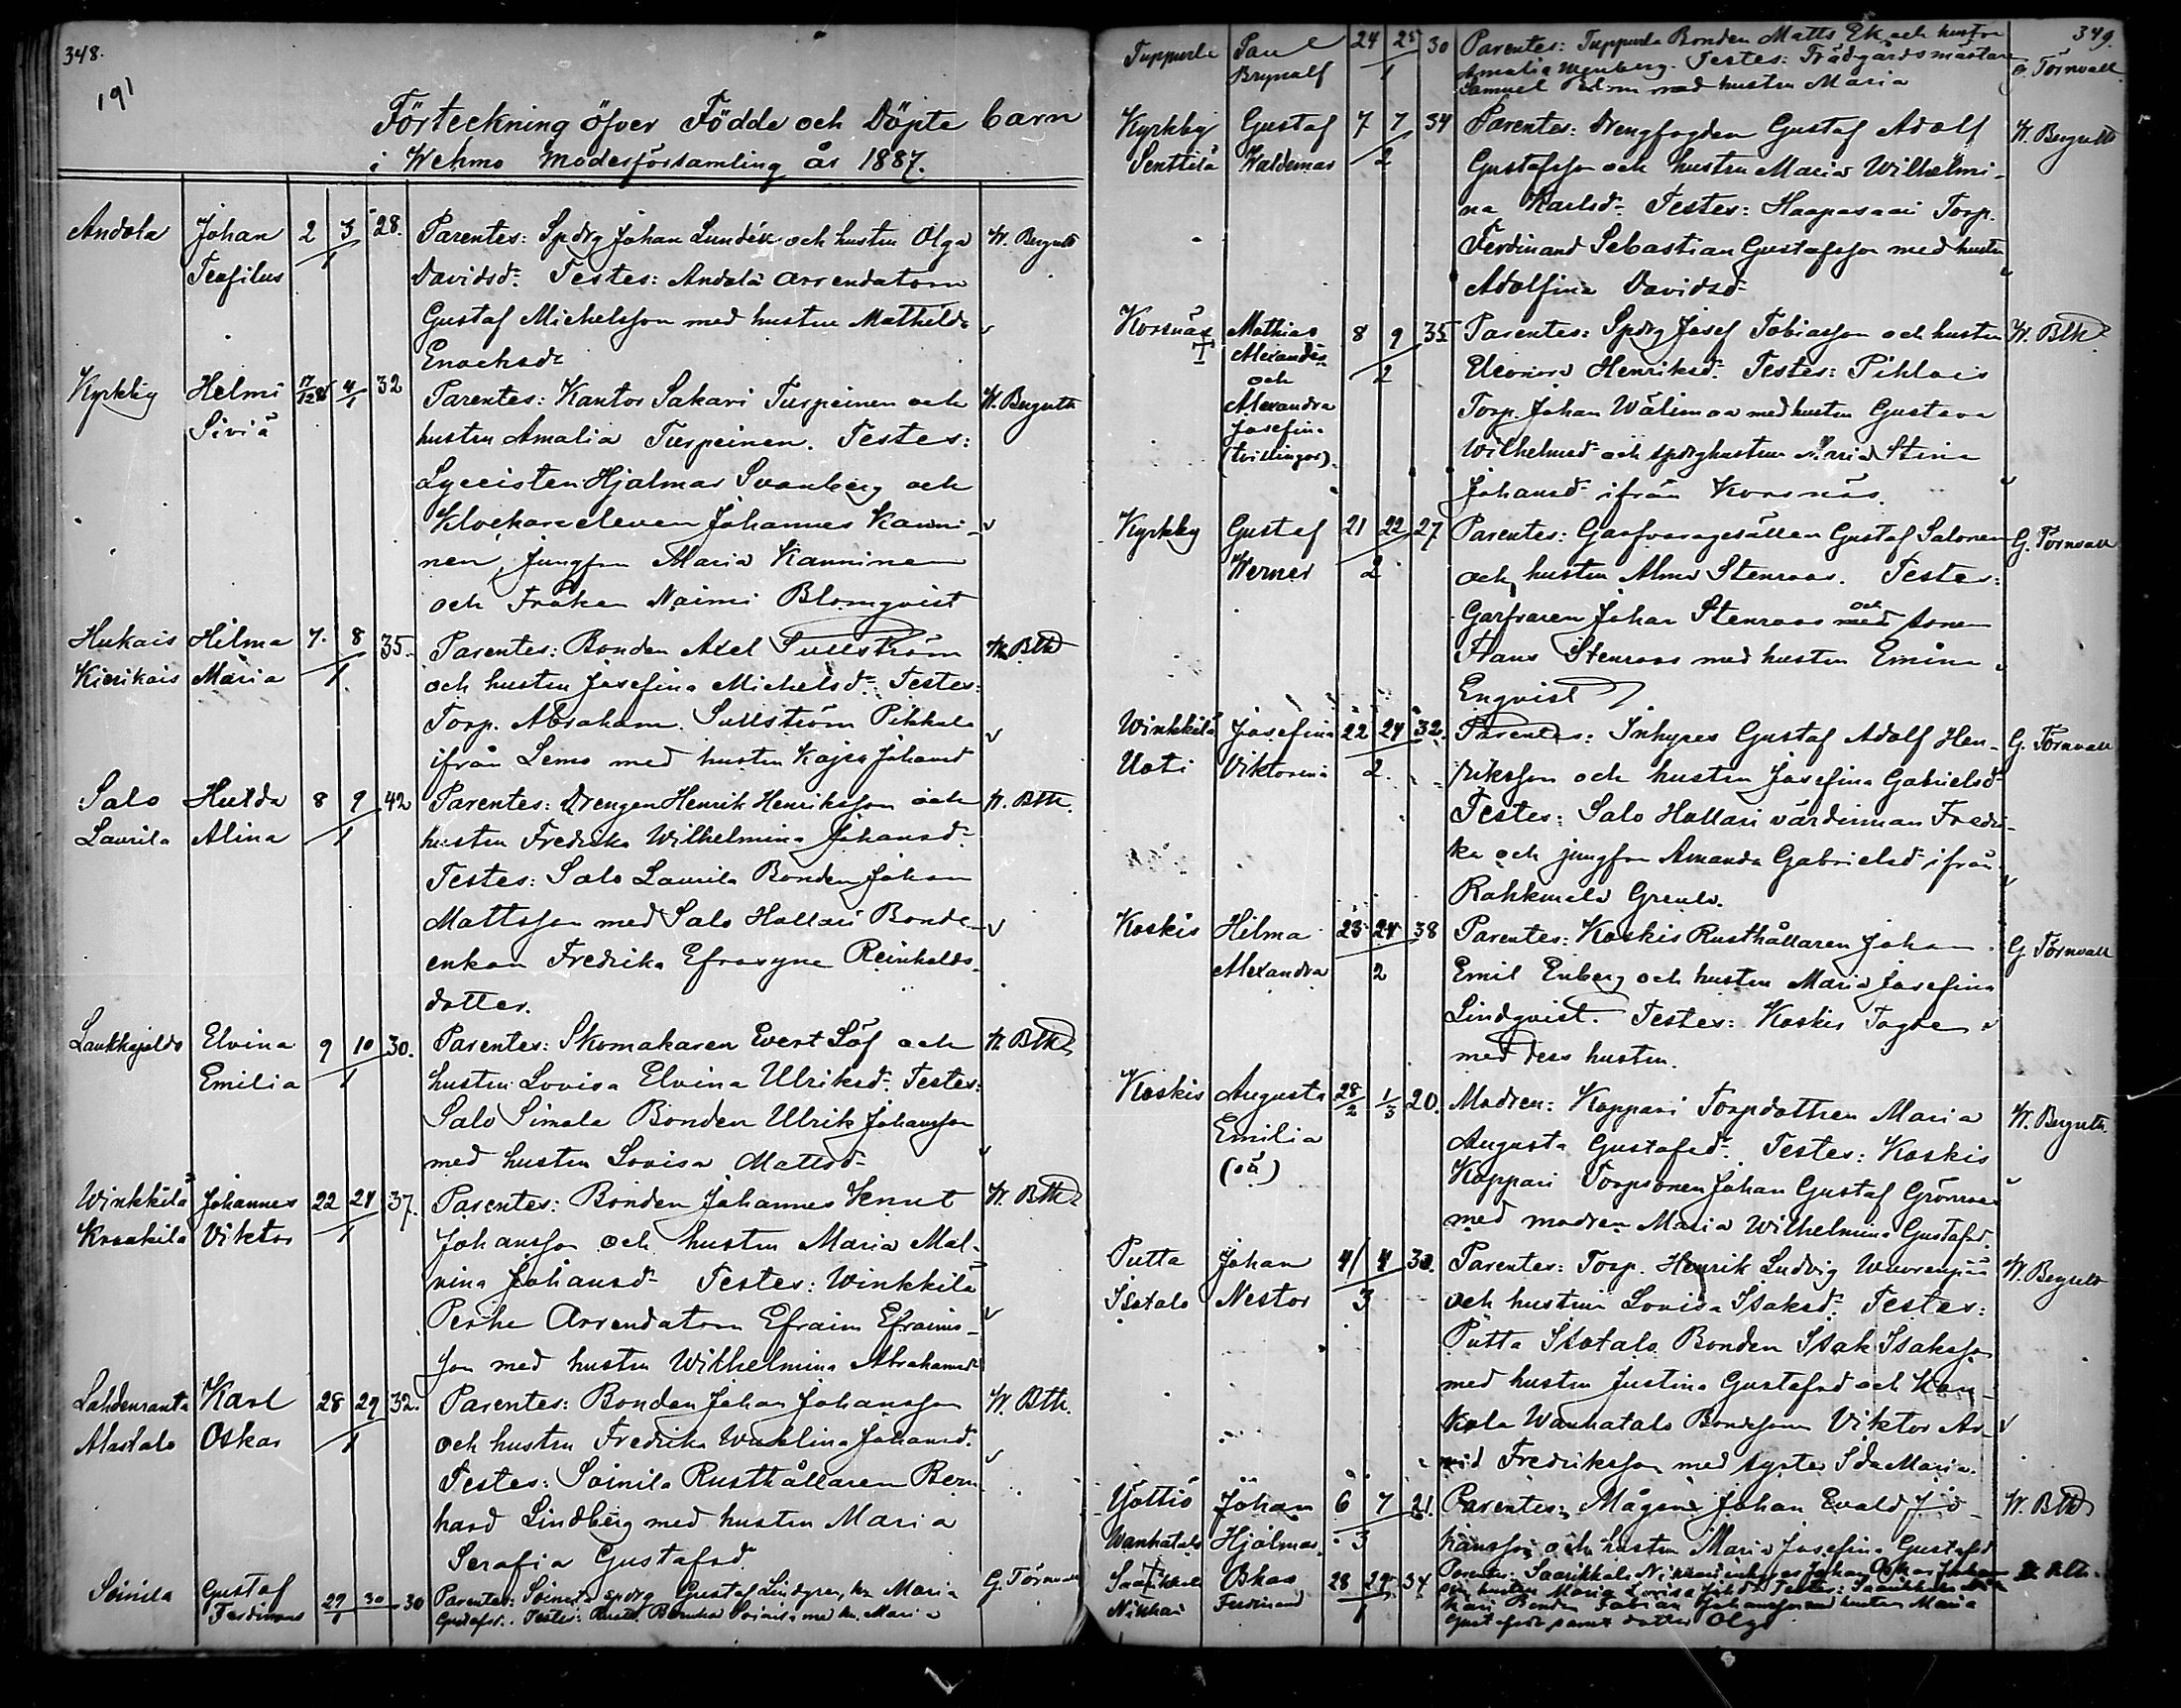 348.
191
Förteckning öfver Födde och Döpte barn
i Wehmo Moderförsamling år 1887.
Andola Johan 2 3 28. Parentes: Spdrg Johan Lundén och hustru Olga W. Bergroth
Teofilus 1 Davidsd:r Testes: Andola arrendatorn
Gustaf Michelsson med hustru Mathilda
Enochsd:r
Kyrkby Helmi 17/12 86 4/1 32 Parentes: Kantor Sakari Turpeinen och W. Bergroth
Siviä hustru Amalia Turpeinen. Testes:
Lyceisten Hjalmar Svanberg och
Klockareeleven Johannes Kanni-
nen, Jungfru Maria Kanninen
och Fröken Naimi Blomqvist
Hukais Hilma 7. 8 35. Parentes: Bonden Axel Sullström W. Bth
Kierikais Maria 1 och hustru Josefina Michelsd:r Testes:
Torp. Abraham Sullström Pikkala
ifrån Lemo med hustru Kajsa Johansd
Salo Hulda 8 9 42 Parentes: Drengen Henrik Henriksson och W. Bth.
Laurila Alina 1 hustru Fredrika Wilhelmina Johansd:r
Testes: Salo Laurila Bonden Johan
Mattsson med Salo Hallari Bonde-
enkan Fredrika Efrosyne Reinholds-
dotter.
Laukkajoldo Elvina 9 10 30. Parentes: Skomakaren Evert Löf och W. Bth
Emilia 1 hustru Lovisa Elvina Ulriksd:r Testes:
Salo Simola Bonden Ulrik Johansson
med hustru Lovisa Mattsd:r
Winkkilä Johannes 22 24 37. Parentes: Bonden Johannes Knut W. Bth
Krookila Viktor 1 Johansson och hustru Maria Mal-
vina Johansd:r Testes: Winkkilä
Perhe Arrendatorn Efraim Efraims-
son med hustru Wilhelmina Abrahamsd:r
Lahdenranta Karl 28 29 32. Parentes: Bonden Johan Johansson W. Bth.
Alastalo Oskar 1 och hustru Fredrika Johansd.
Testes: Soinila Rusthållaren Bern-
hard Lindberg med hustru Maria
Serafia Gustafsd
Soinila Gustaf 29 30 30 Parentes: Soinila Spdrg Gustaf Lindgren, hu Maria G. Törnvall
Ferdinand 1 Gustafsd. Testes: med hu. Maria
349.
Tuppurla Paul 24 25 30 Parentes: Tuppurla Bonden Matts Ek och hustru
Brynolf 1 Amalia. Testes: Trädgårdsmästaren G. Törnvall
Samuel med hustru Maria
Kyrkby Gustaf 7 7 34 Parentes: Drengfogden Gustaf Adolf W. Bergroth
Senttilä Waldemar 2 Gustafsson och hustru Maria Wilhelmi-
na Karlsd:r Testes: Haapasaari Torp.
Ferdinand Sebastian Gustafsson med hustru
Adolfina Davidsd
Korsnäs Mathias 8 9 35 Parentes: Spdrg Josef Tobiasson och hustru W. Bth
Alexander 2 Eleonora Henriksd:r Testes: Pihlais
och Torp. Johan Wälimaa med hustru Gustava
Alexandra Wilhelmsd och spdrghustrun Maria Stina
Josefina Johansd ifrån Korsnäs.
(tvillingar).
Kyrkby Gustaf 21 22 27 Parentes: Garfvaregesällen Gustaf Salonen G. Törnvall
Werner 2 och hustru Alma Stenroos. Testes:
Garfvaren Johan Stenroos och sonen
Frans Stenroos med hustru Emina
Enqvist
Winkkilä Josefina 22 24 32. Parentes: Inhyses Gustaf Adolf Hen- G. Törnvall
Uoti Viktorina 2 riksson och hustru Josefina Gabrielsd
Testes: Salo Hallari värdinnan Fredri-
ka och jungfru Amanda Gabrielsd ifrån
Rahkmala Greulo.
Koskis Hilma 23 24 38 Parentes: Koskis Rusthållaren Johan G. Törnvall
Alexandra 2 Emil Enberg och hustru Maria Josefina
Lindqvist. Testes: Koskis
med dess hustru.
Koskis Augusta 28/2 1/3 20. Modren: Koppari Torpdottren Maria W. Bergroth.
Emilia Augusta Gustafsd:r Testes: Koskis
(oä) Koppari Torpsonen Johan Gustaf Grönroos
med modren Maria Wilhelmina Gustafsd.
Putta Johan 4 4 30. Parentes: Torp. Henrik Ludvig W. Bergroth
Isotalo Nestor 3 och hustrun Lovisa Isaksd:r Testes:
Putta Isotalo Bonden Isak Isaksson
med hustru Justina Gustafsd och Kau-
kola Wanhatalo Bondesonen Viktor Ar-
vid Fredriksson med syster Ida Maria.
Yöttiö Johan 6 7 21. Parentes: Mågen Johan Evald Jo- W. Bth
Wanhatalo Hjalmar 3 hansson och hustru Maria Josefina Gustafsd
Saarikkala Oskar 28 29 34 Parentes: Saarikkala Nikkari inhyses Johan Oskar Johans-
Nikkari Ferdinand 1 son hustru Maria Lovisa Testes: Saarikkala Nik-
kari Bonden Fabian Johansson med hustru Maria
Gustafsd samt dotter Olga